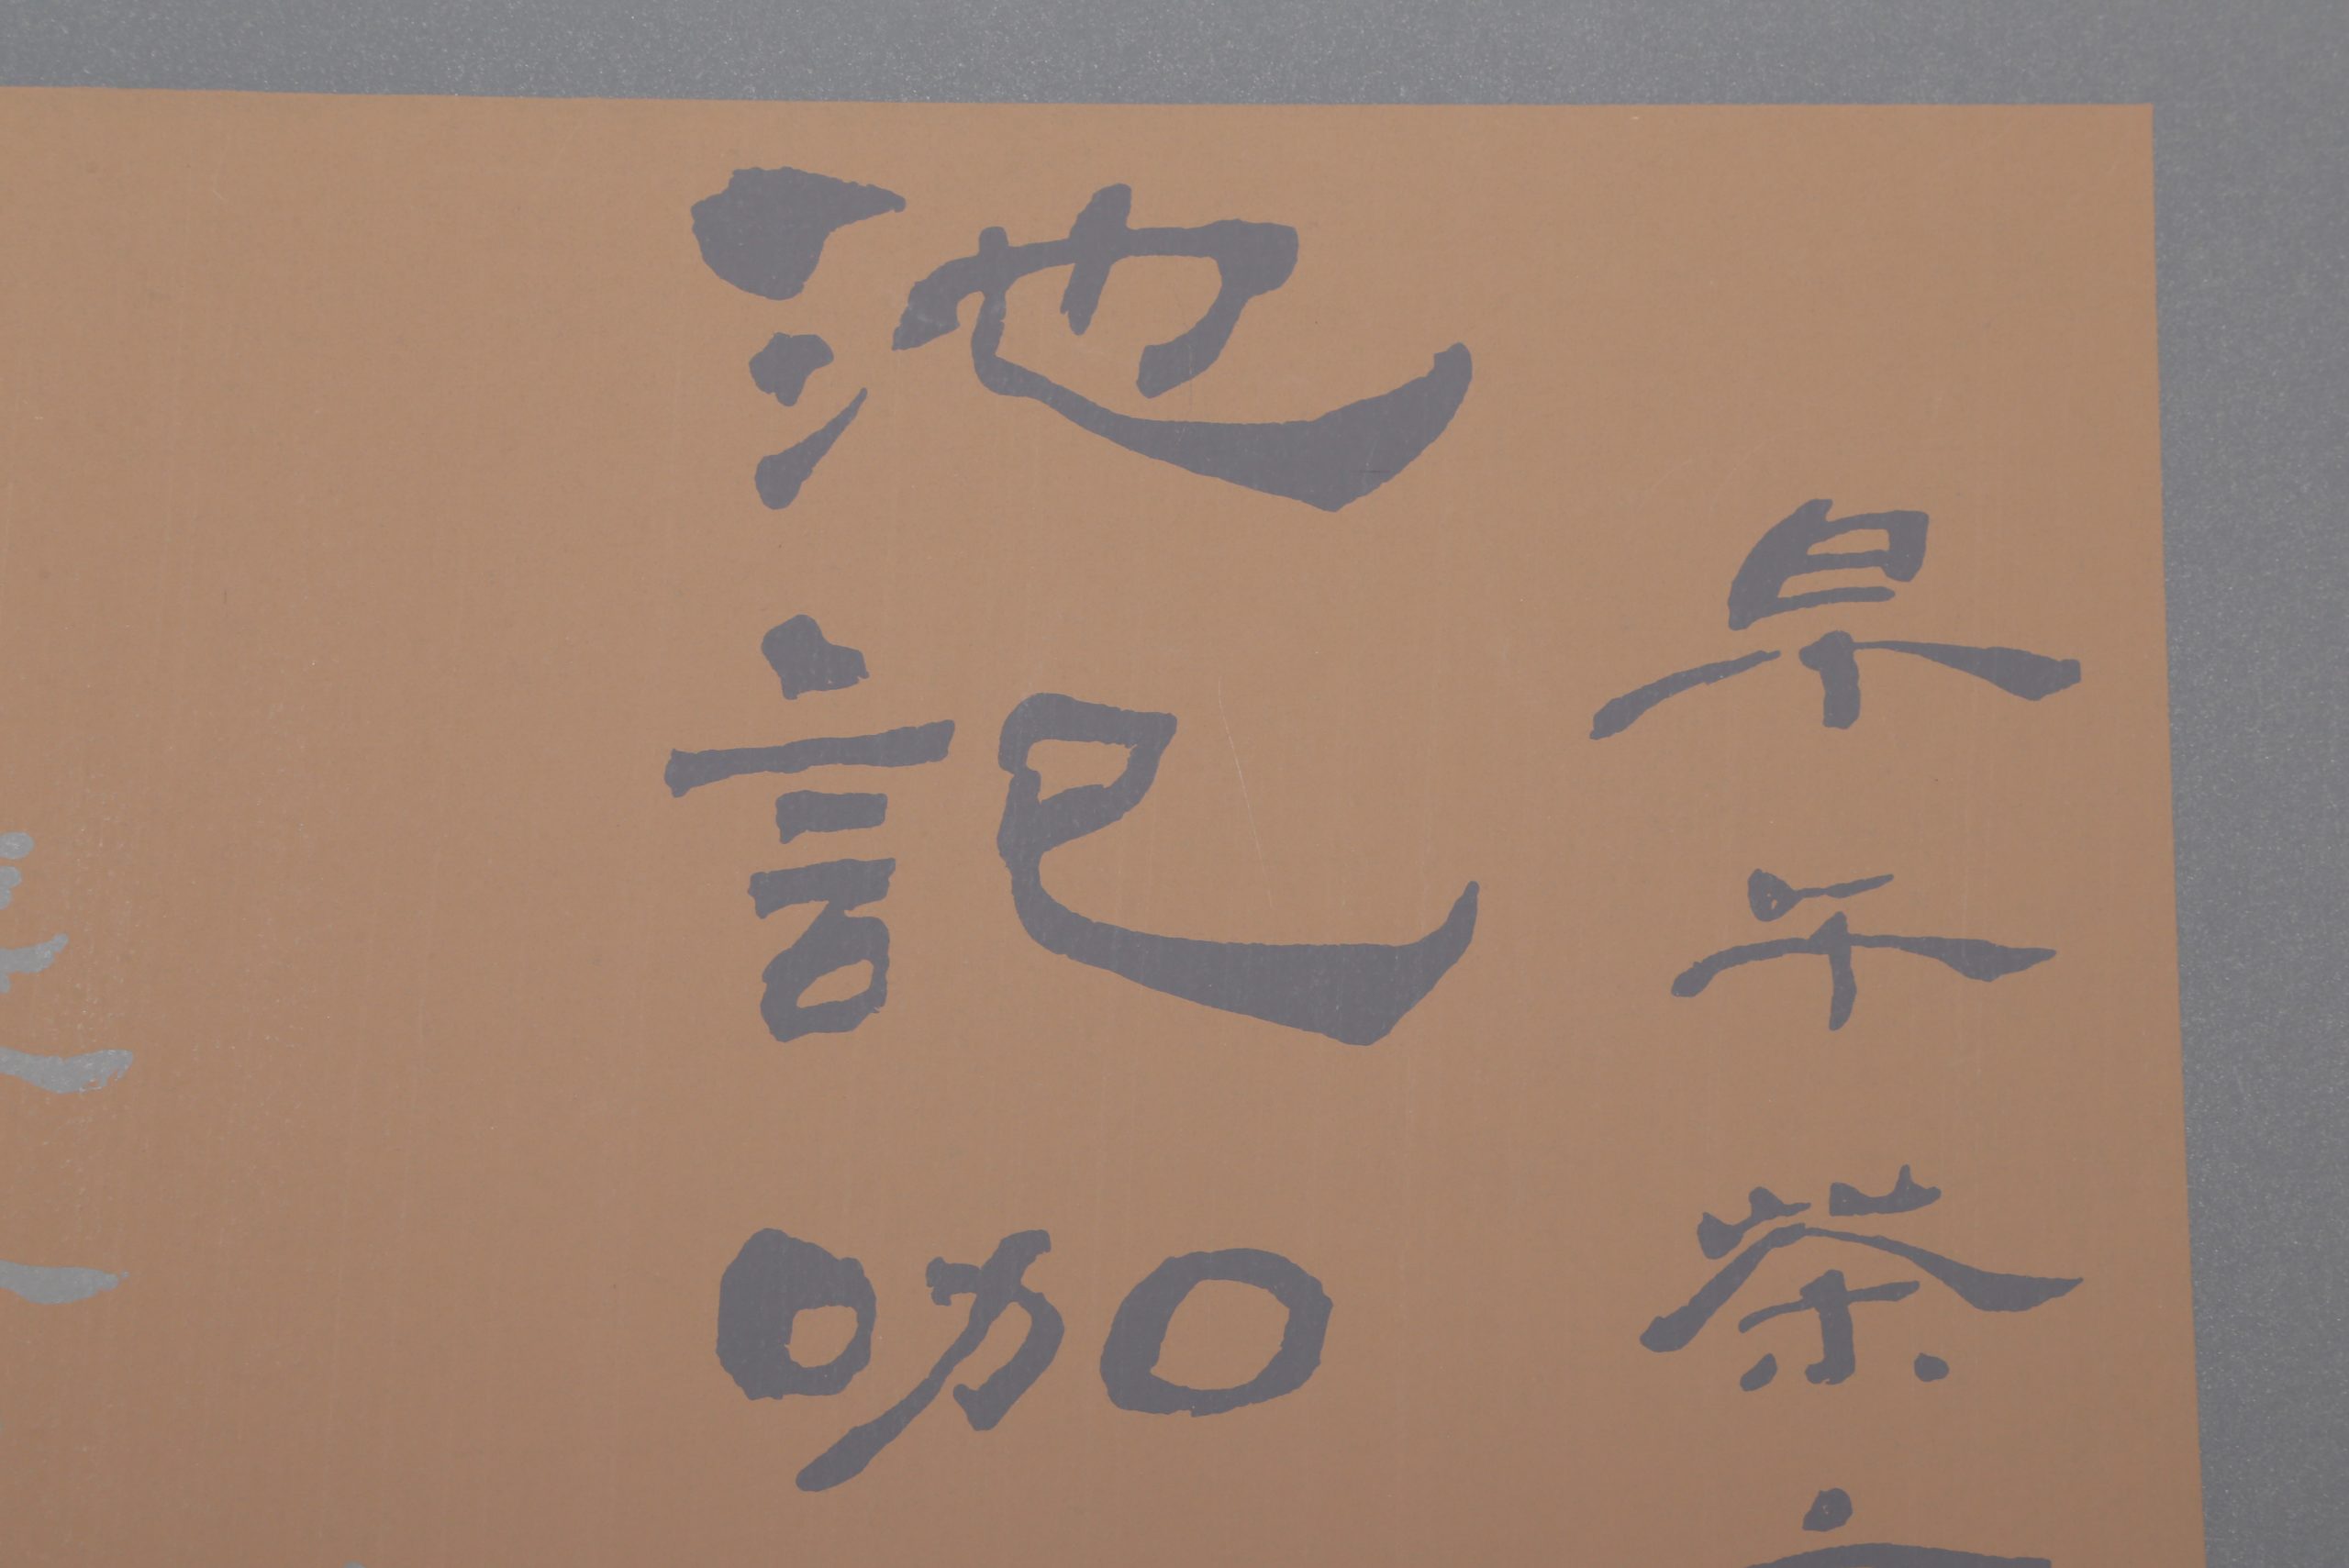 泉午茶
池記咖